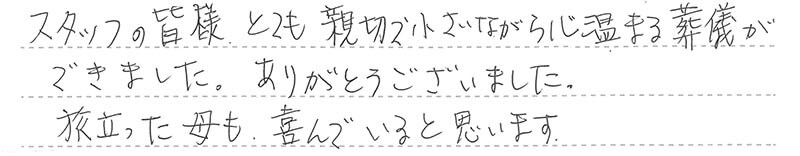 スタッフの皆様、とても親切で小さいながら心温まる葬儀が
できました。ありがとうございました。
旅立った母も、喜んでいると思います。